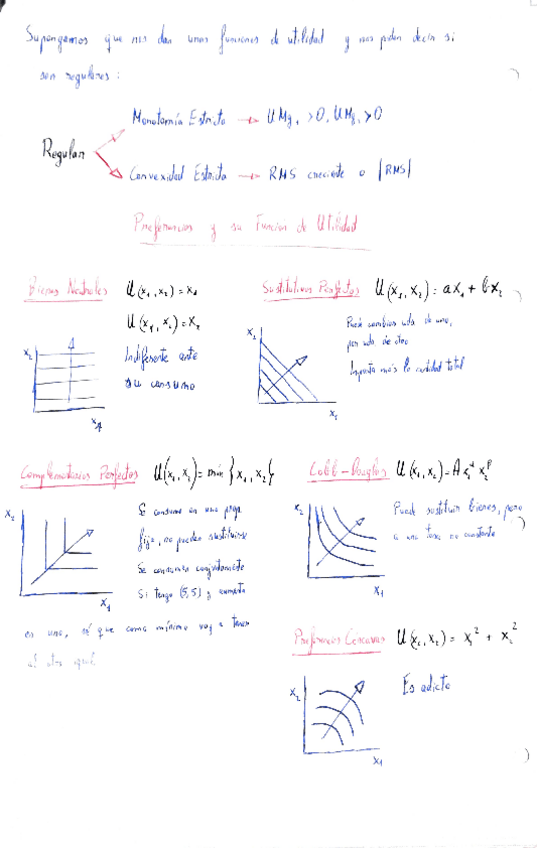 Supongamos que nos dan unas funciones de utilidad y nos piden decir si
son regulares:
Monotonía Estricta → UMg₁ >0, UMg₂ >0
Regular
Convexidad Estricta → RMS creciente o |RMS|
Preferencias y su Función de Utilidad
Bienes Neutrales U(x₁,x₂)=x₁
U(x₁,x₂)=x₂
x₂
Indiferente ante
su consumo
x₁
Sustitutivos Perfectos U(x₁,x₂)= ax₁+bx₂
Puede cambiar uds de uno,
por uds de otro
Importa más la cantidad total
x₂
x₁
Complementarios Perfectos U(x₁,x₂)=min{x₁,x₂}
x₂
Se consume en una prop.
fija, no pueden sustituirse
Se consumen conjuntamente
Si tengo (5,5) y aumenta
x₁
en uno, es que como mínimo voy a tener
al otro igual
Cobb-Douglas U(x₁,x₂)=Ax₁^α x₂^β
x₂
Puede sustituir bienes, pero
a una tasa no constante
x₁
Preferencias Concavas U(x₁,x₂) = x₁² + x₂²
x₂
Es adicto
x₁